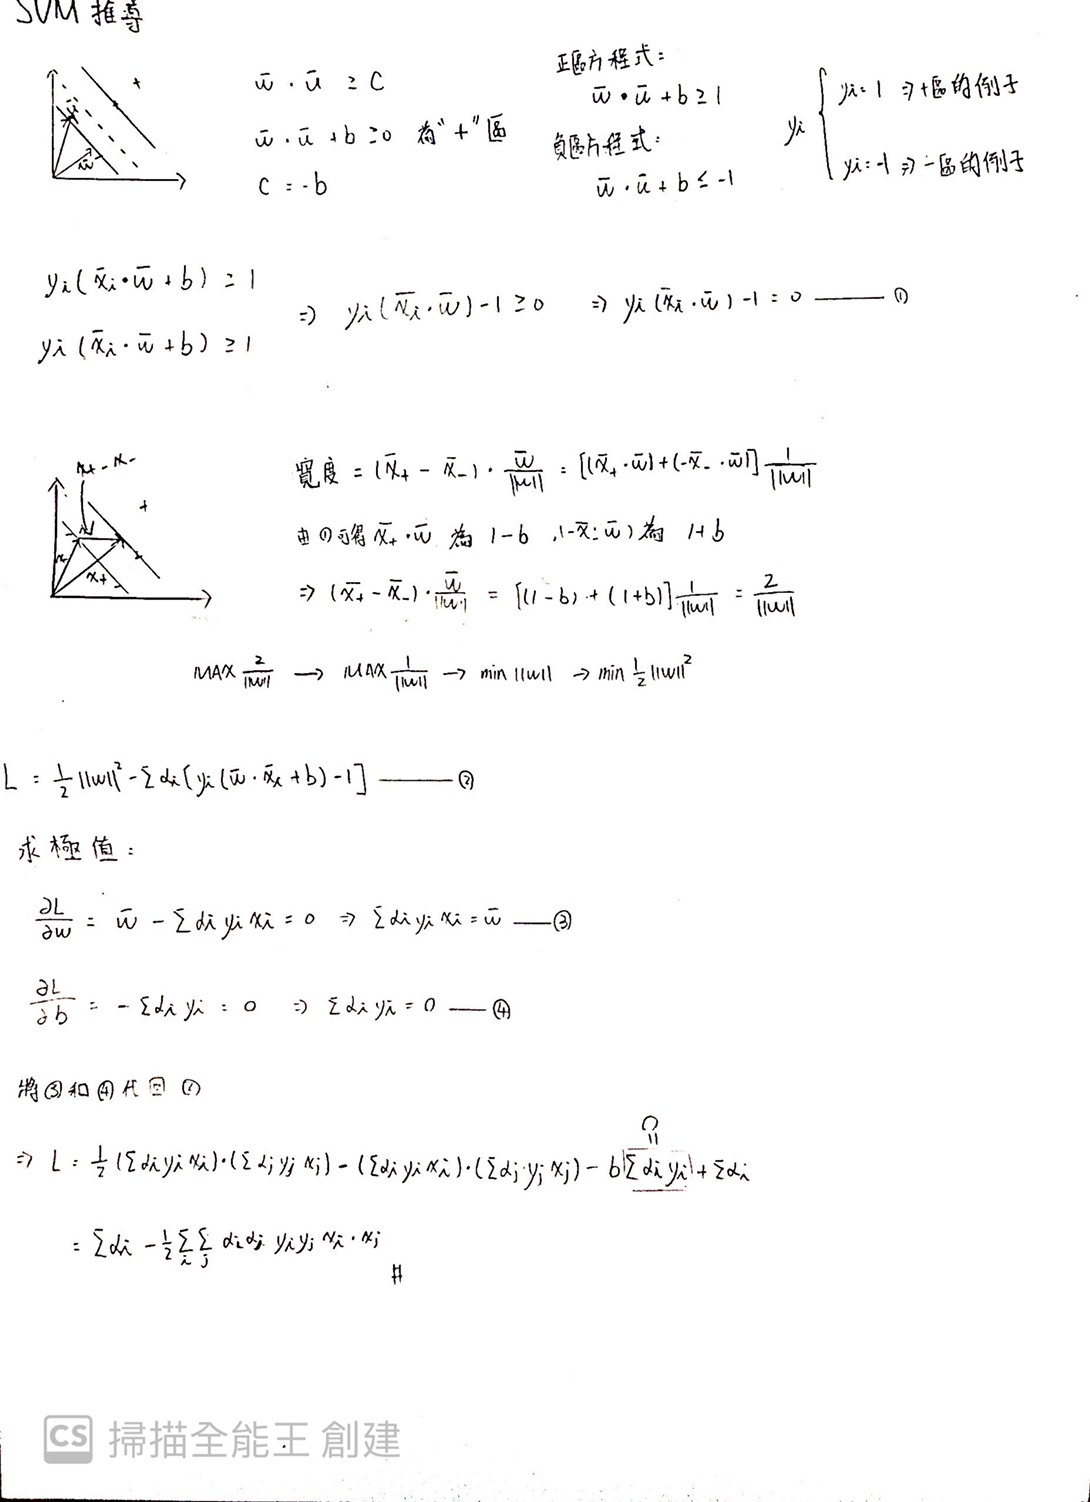 SVM 推導
w̄ · ū ≥ C
w̄ · ū + b ≥ 0 為"+"區
C = -b
正區方程式:
w̄ · ū + b ≥ 1
負區方程式:
w̄ · ū + b ≤ -1
yi { yi = 1 ⇒ +區的例子
yi = -1 ⇒ -區的例子
+
ū
w̄
yi (x̄i · w̄ + b) ≥ 1
yi (x̄i · w̄ + b) ≥ 1
⇒ yi (x̄i · w̄) - 1 ≥ 0 ⇒ yi (x̄i · w̄) - 1 = 0 —— ①
x+ - x-
+
x-
x+
-
寬度 = (x̄+ - x̄-) · w̄/||w|| = [(x̄+ · w̄) + (-x̄- · w̄)] 1/||w||
由①可得 x̄+ · w̄ 為 1-b , (-x̄- · w̄) 為 1+b
⇒ (x̄+ - x̄-) · w̄/||w|| = [(1-b) + (1+b)] 1/||w|| = 2/||w||
MAX 2/||w|| → MAX 1/||w|| → min ||w|| → min 1/2 ||w||²
L = 1/2 ||w||² - Σαi [yi (w̄ · x̄i + b) - 1] —— ②
求極值:
∂L/∂w = w̄ - Σαi yi xi = 0 ⇒ Σαi yi xi = w̄ —— ③
∂L/∂b = - Σαi yi = 0 ⇒ Σαi yi = 0 —— ④
將③和④代回②
0
=
⇒ L = 1/2 (Σαi yi xi) · (Σαj yj xj) - (Σαi yi xi) · (Σαj yj xj) - b Σαi yi + Σαi
= Σαi - 1/2 Σi Σj αi αj yi yj xi · xj
#
CS 掃描全能王 創建